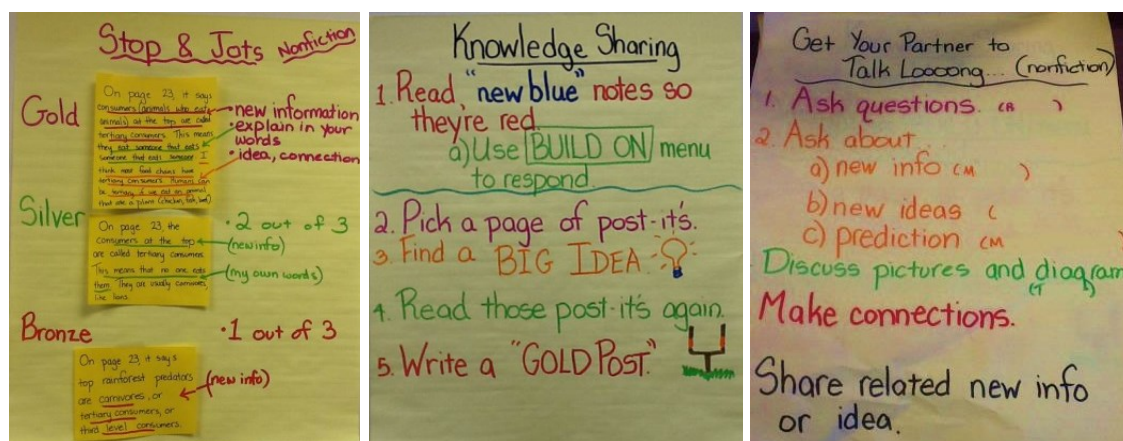 Stop & Jots Nonfiction
Gold
On page 23, it says
consumers (animals who eat
animals) at the top are called
tertiary consumers. This means
they eat someone that eats
someone that eats someone. I
think most food chains have
tertiary consumers. Humans can
be tertiary if we eat an animal
that ate a plant (chicken, fish, beef)
• new information
• explain in your
words
• idea, connection
Silver
On page 23, the
consumers at the top
are called tertiary consumers
This means that no one eats
them. They are usually carnivores,
like lions.
• 2 out of 3
(new info)
(my own words)
Bronze
On page 23, it says
top rainforest predators
are carnivores, or
tertiary consumers, or
third level consumers.
• 1 out of 3
(new info)
Knowledge Sharing
1. Read "new blue" notes so
they're red.
a) Use BUILD ON menu
to respond.
2. Pick a page of post-it's.
3. Find a BIG IDEA
4. Read those post-it's again.
5. Write a "GOLD POST."
Get Your Partner to
Talk Loooong... (nonfiction)
1. Ask questions. (R )
2. Ask about...
a) new info (M )
b) new ideas ( 
c) prediction (M )
Discuss pictures and diagram
(T )
Make connections.
Share related new info
or idea.